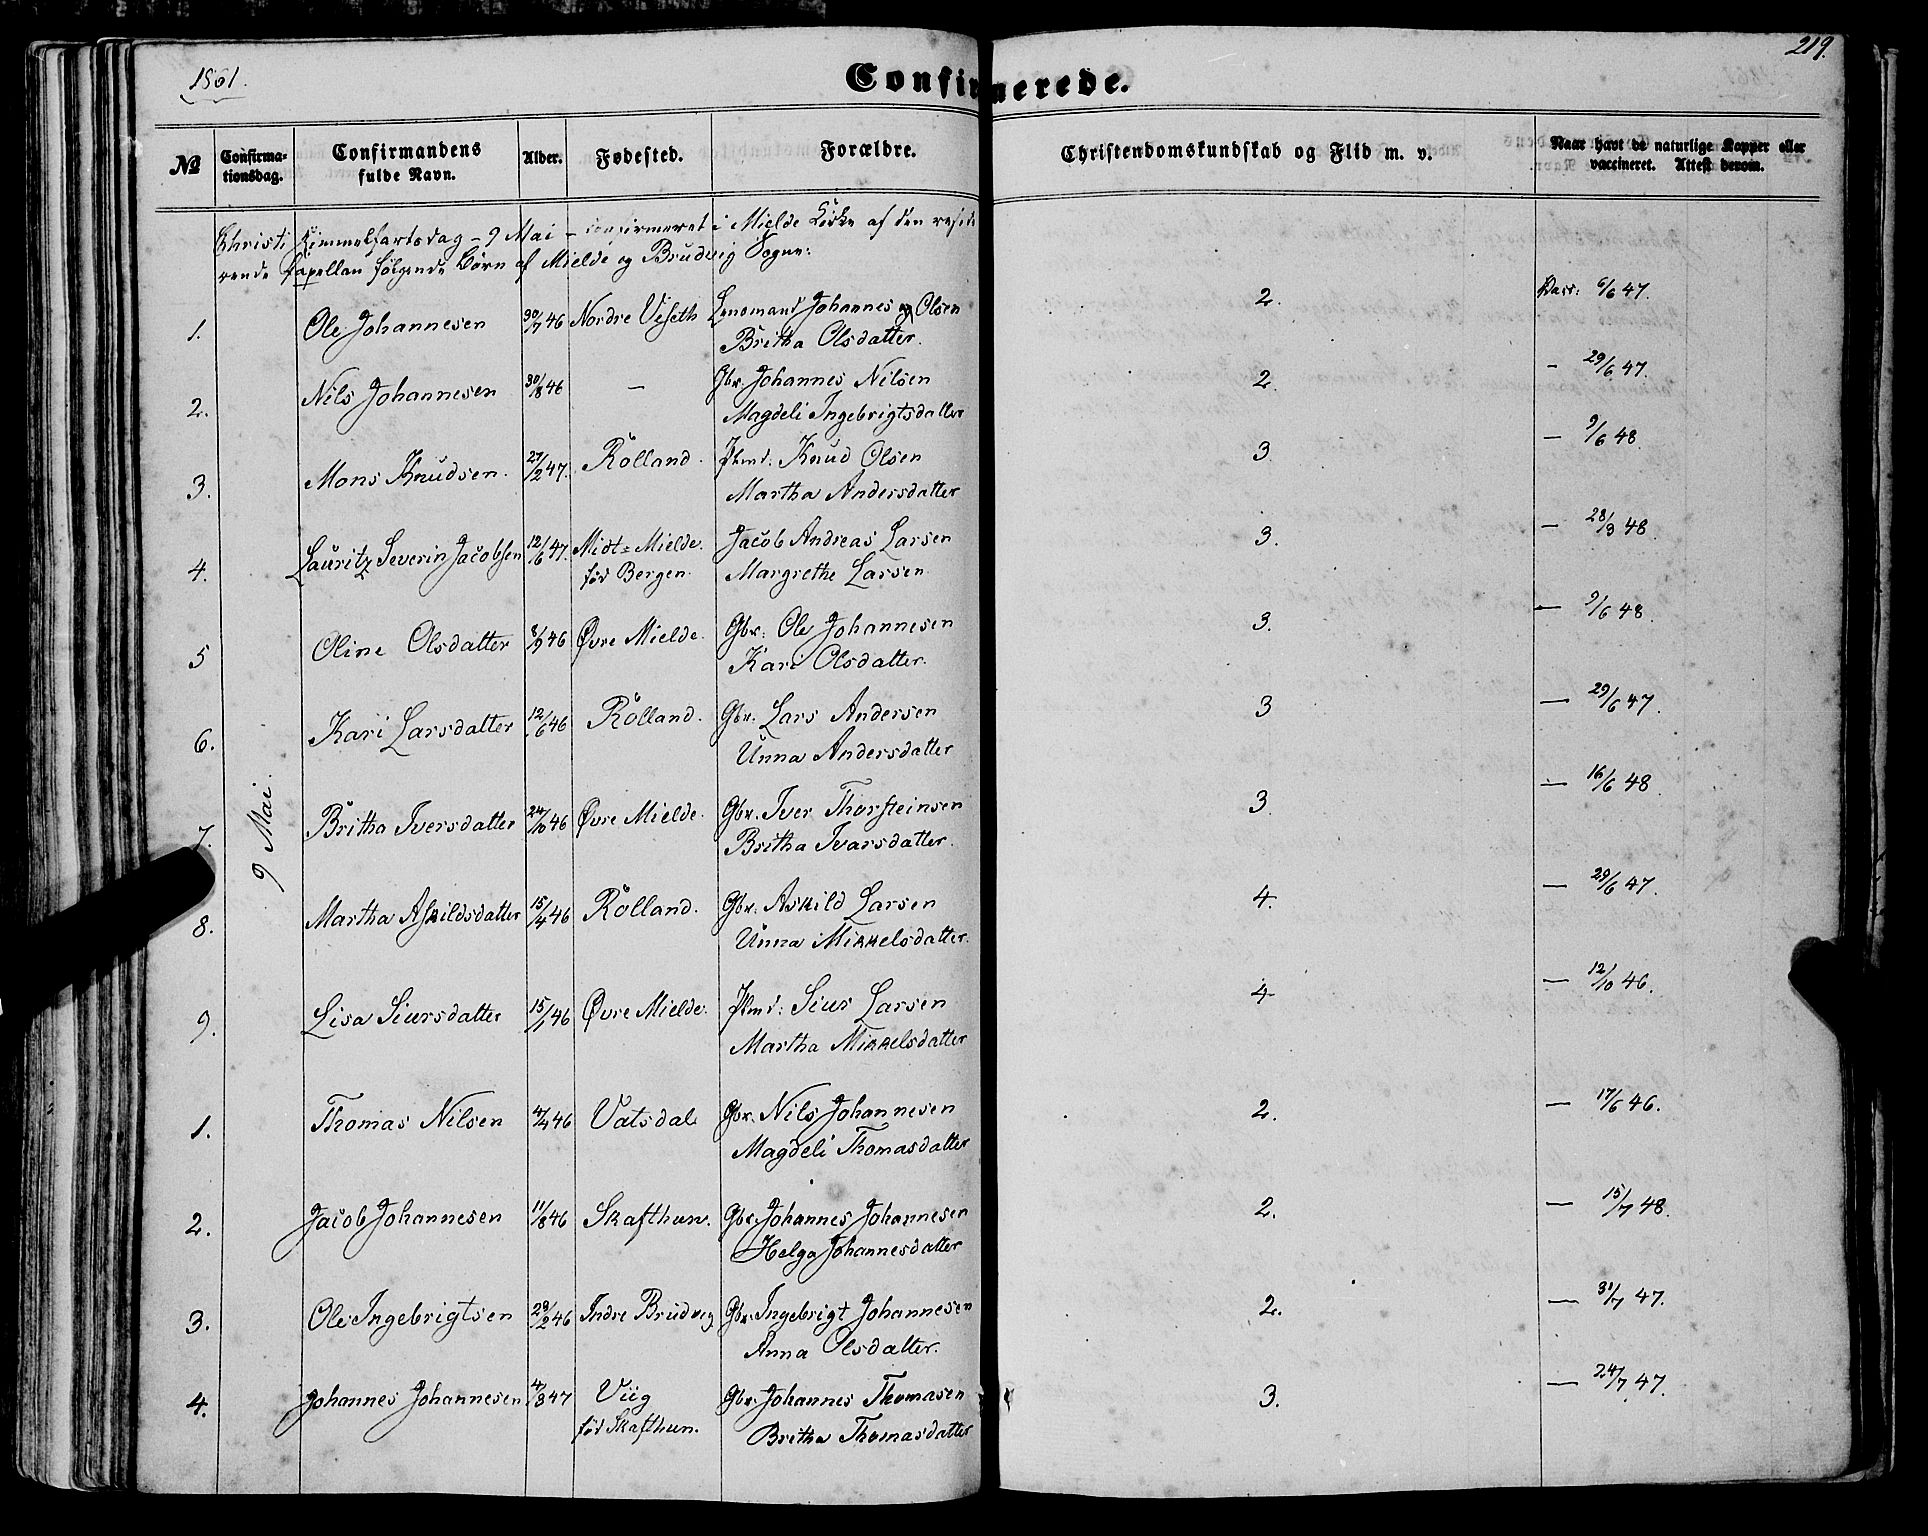 1861.
219.
Confirmerede.
No
Confirma-
tionsdag.
Confirmandens
fulde Navn.
Alder.
Fødested.
Forældre.
Christendomskundskab og Flid m. v.
Naar havt de naturlige Kopper eller
vaccineret. Attest derom.
Christi Himmelfartsdag - 9 Mai - confirmeret i Mielde Kirke af den resid-
rende Capellan følgende Børn af Mielde og Brudvig Sogne:
9 Mai.
1. Ole Johannesen 30/7 46 Nordre Viseth Lensmand Johannes Olsen 2. Vacc: 6/6 47.
Britha Olsdatter.
2. Nils Johannesen 30/8 46 — Gbr. Johannes Nilsen 2. - 29/6 47.
Magdeli Ingebrigtsdatter
3. Mons Knudsen. 27/2 47. Rolland. Knud Olsen 3. — 9/6 48.
Martha Andersdatter
4. Lauritz Severin Jacobsen 12/6 47. Midt-Mielde. Jacob Andreas Larsen 3. — 28/3 48.
før Bergen. Margrethe Larsen.
5 Oline Olsdatter 8/9 46 Øvre Mielde. Gbr: Ole Johannesen 3. — 9/6 48.
Kari Olsdatter.
6. Kari Larsdatter 12/6 46 Rolland. Gbr: Lars Andersen 3 — 29/6 47.
Unna Andersdatter
7. Britha Iversdatter 24/10 46 Øvre Mielde. Gbr. Iver Thorsteinsen 3. — 16/6 48
Britha Ivarsdatter.
8. Martha Askildsdatter 15/4 46 Rolland. Gbr. Askild Larsen 4. — 29/6 47.
Unna Mikkelsdatter.
9. Lisa Siursdatter 15/1 46 Øvre Mielde. Siur Larsen 4 — 12/10 46.
Martha Mikkelsdatter
1. Thomas Nilsen 4/4 46 Vatsdal Gbr. Nils Johannesen 2. — 17/6 46.
Magdeli Thomasdatter
2. Jacob Johannesen 11/8 46 Skafthun. Gbr. Johannes Johannesen 2. — 15/7 48.
Helga Johannesdatter
3. Ole Ingebrigtsen 28/2 46 Indre Brudvig Gbr. Ingebrigt Johannesen 2. — 31/7 47.
Anna Olsdatter.
4. Johannes Johannesen 4/8 47 Viig Gbr. Johannes Thomasen 3. — 24/7 47.
før Skafthun. Britha Thomasdatter